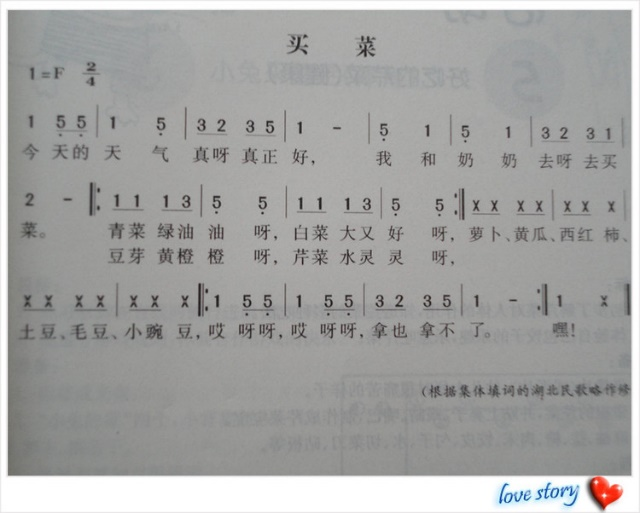 买 菜
1=F 2/4
1 5 5 | 1 5 | 3 2 3 5 | 1 - | 5 1 | 5 1 | 3 2 3 1 |
今 天的 天 气 真呀 真正 好, 我 和 奶 奶 去呀 去买
2 - ‖: 1 1 1 3 | 5 5 | 1 1 1 3 | 5 5 :‖ x x x x | x x x |
菜。 青菜 绿油 油 呀, 白菜 大又 好 呀, 萝卜、黄瓜、西红 柿、
豆芽 黄橙 橙 呀, 芹菜 水灵 灵 呀,
x x x x | x x x ‖: 1 5 5 | 1 5 5 | 3 2 3 5 | 1 - :‖ 1 ‖
土豆、毛豆、小豌 豆, 哎 呀呀, 哎 呀呀, 拿也 拿不 了。 嘿!
(根据集体填词的湖北民歌略作修
love story